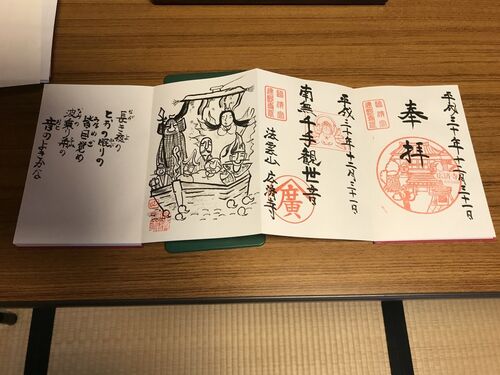 平成三十年十二月三十一日
奉拝
平成三十年十二月三十一日
南無千手觀世音
法雲山 広済寺
廣
長き夜の
とおの眠りの
皆目覚め
波乗り船の
音のよきかな